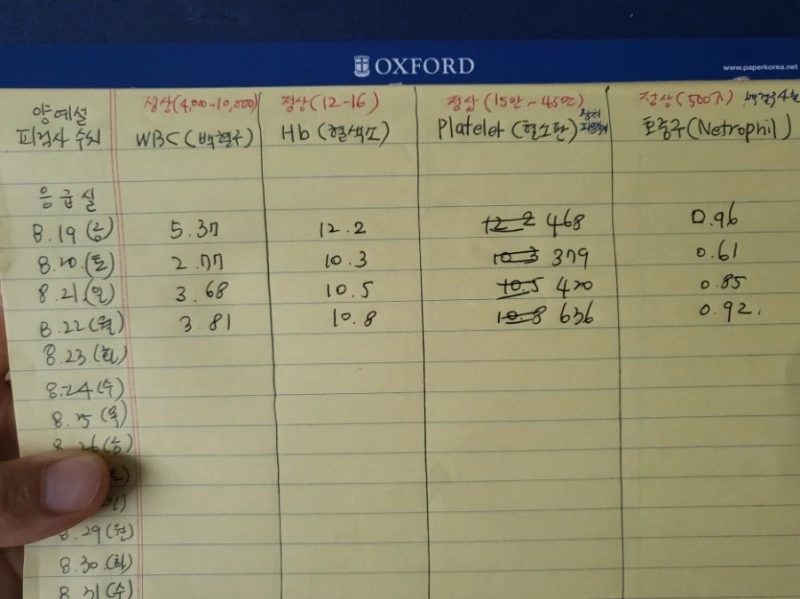 OXFORD
www.paperkorea.net
양예설 정상(4,000~10,000) 정상(12-16) 정상(15만~45만) 정상(500↑)
피검사 수치 WBC(백혈구) Hb(혈색소) Platelet(혈소판) 호중구(Netrophil)
응급실
8.19(금) 5.37 12.2 12.2 468 0.96
8.20(토) 2.77 10.3 10.3 379 0.61
8.21(일) 3.68 10.5 10.5 420 0.85
8.22(월) 3.81 10.8 10.8 636 0.92.
8.23(화)
8.24(수)
8.25(목)
8.26(금)
8.29(월)
8.30(화)
8.31(수)